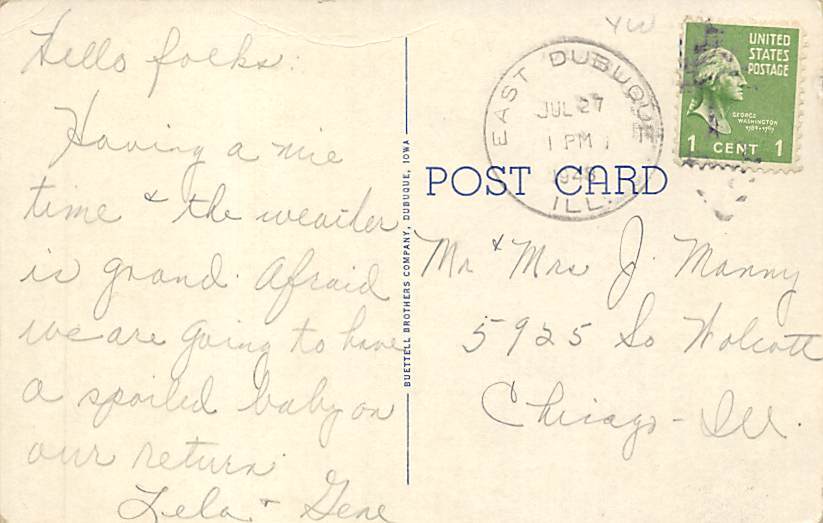 Hello folks:
Having a nice
time & the weather
is grand. Afraid
we are going to have
a spoiled baby on
our return.
Lela & Gene
BUETTELL BROTHERS COMPANY, DUBUQUE, IOWA
YW
EAST DUBUQUE
JUL 27
1 PM
ILL.
UNITED
STATES
POSTAGE
GEORGE
WASHINGTON
1789-1797
1 CENT 1
POST CARD
Mr & Mrs J. Manny
5925 So Wolcott
Chicago - Ill.